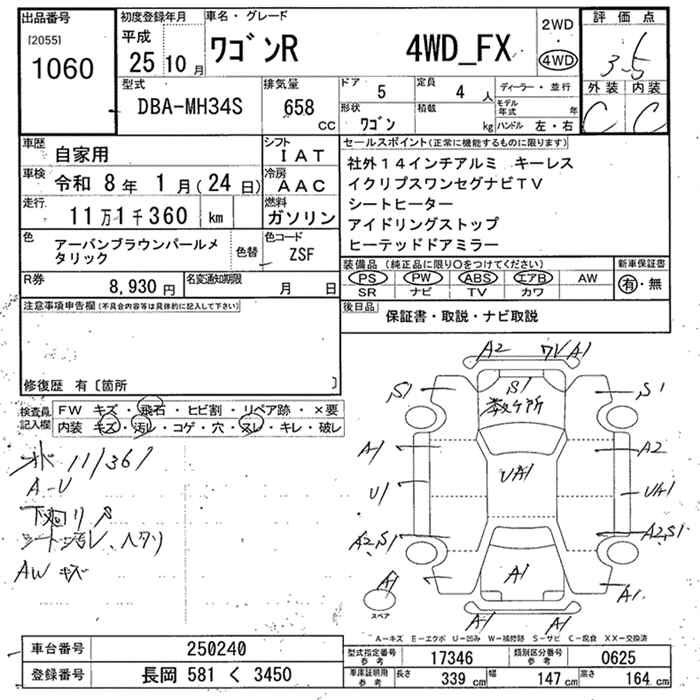 出品番号
[2055]
1060
初度登録年月
平成
25 10 月
車名・グレード
ワゴンR 4WD_FX
2WD
・
4WD
評価点
3.5
外装 内装
C C
型式
DBA-MH34S
排気量
658
CC
ドア
5
定員
4 人
ディーラー・並行
形状
ワゴン
積載
kg
モデル年式 年
ハンドル 左・右
車歴
自家用
シフト
IAT
車検
令和 8年 1月(24日)
冷房
AAC
走行
11万1千360 km
燃料
ガソリン
色
アーバンブラウンパールメ
タリック
色替
色コード
ZSF
R券
8,930円
名変通知期限
月 日
セールスポイント(正常に機能するものに限ります)
社外14インチアルミ キーレス
イクリプスワンセグナビTV
シートヒーター
アイドリングストップ
ヒーテッドドアミラー
装備品(純正品に限り○をつけてください)
PS PW ABS エアB AW
SR ナビ TV カワ
新車保証書
有・無
後日品
保証書・取説・ナビ取説
注意事項申告欄(不具合内容等は具体的に記入して下さい)
修復歴 有〔箇所 〕
検査員記入欄
FW キズ・飛石・ヒビ割・リペア跡・×要
内装 キズ・汚レ・コゲ・穴・スレ・キレ・破レ
111361
A-U
下廻りS
シート汚レ、ヘタリ
AW キズ
A2 ワレA1
S1 S1 S1
数ヶ所
A1 A2
UA1
U1 UA1
A2,S1 A2,S1
A1 A1 A1
スペア
A1 A1
A-キズ E-エクボ U-凹み W-補修跡 S-サビ C-腐食 XX-交換済
車台番号
250240
登録番号
長岡 581 く 3450
型式指定番号
参考
17346
類別区分番号
参考
0625
車庫証明用
参考
長さ
339 cm
幅
147 cm
高さ
164 cm